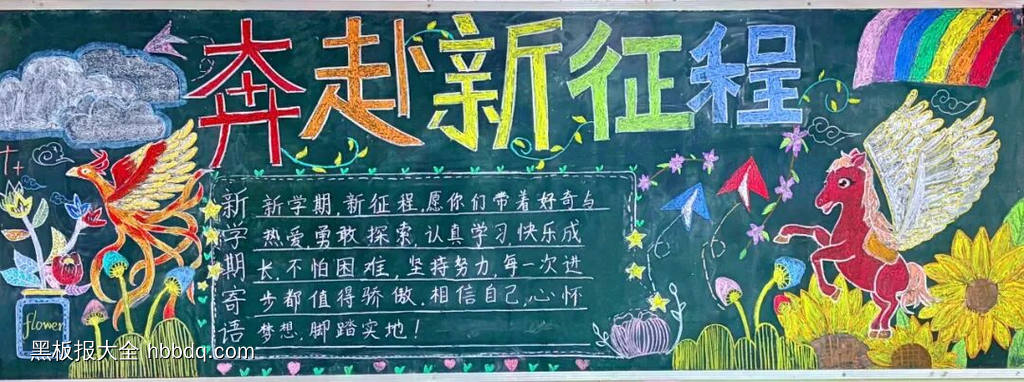 奔赴新征程
新学期寄语
新学期,新征程,愿你们带着好奇与
热爱,勇敢探索,认真学习,快乐成
长,不怕困难,坚持努力,每一次进
步都值得骄傲,相信自己,心怀
梦想,脚踏实地!
flower
黑板报大全 hbbdq.com